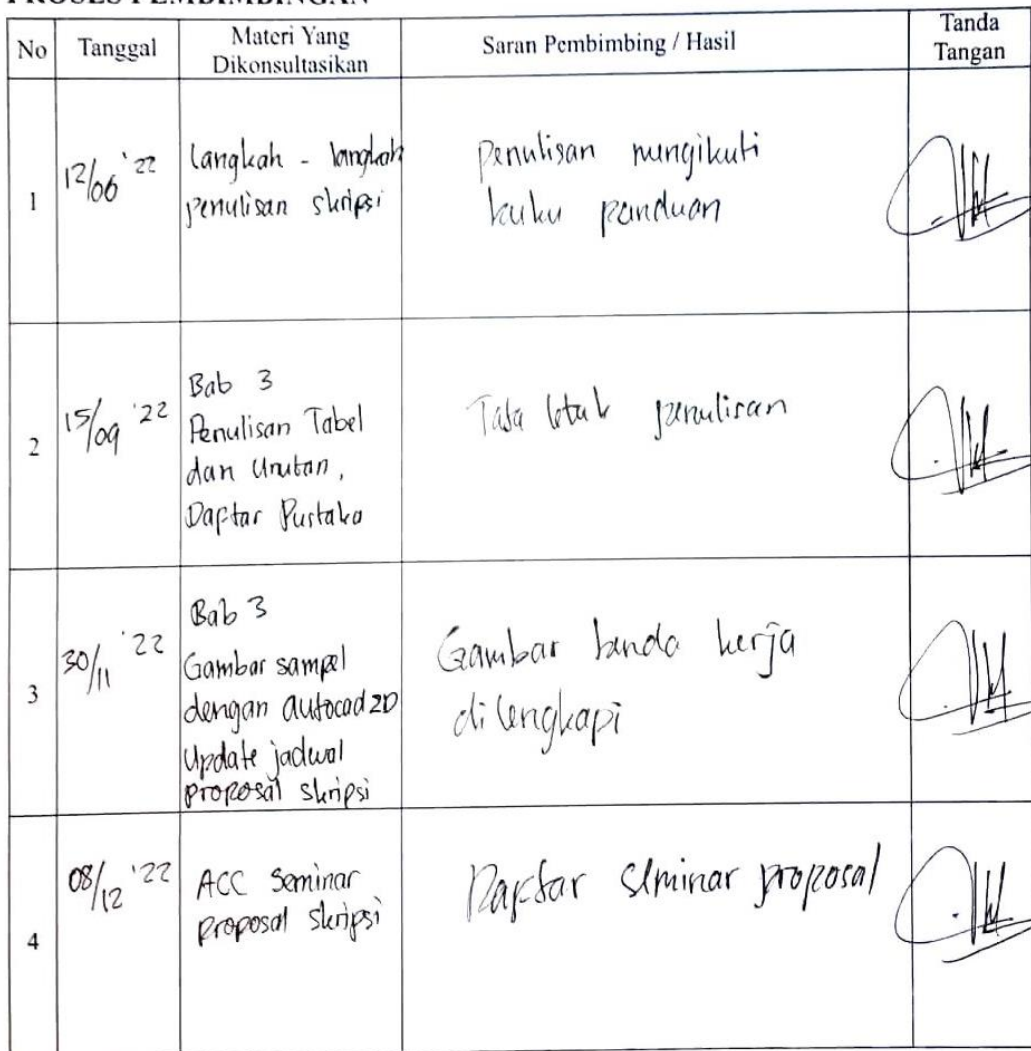 PROSES PEMBIMBINGAN
No
Tanggal
Materi Yang
Dikonsultasikan
Saran Pembimbing / Hasil
Tanda
Tangan
1
12/06 '22
Langkah - langkah
penulisan skripsi
Penulisan mengikuti
buku panduan
2
15/09 '22
Bab 3
Penulisan Tabel
dan Urutan,
Daftar Pustaka
Tata letak penulisan
3
30/11 '22
Bab 3
Gambar sampel
dengan autocad 2D
Update jadwal
proposal skripsi
Gambar benda kerja
dilengkapi
4
08/12 '22
ACC Seminar
proposal skripsi
Daftar seminar proposal